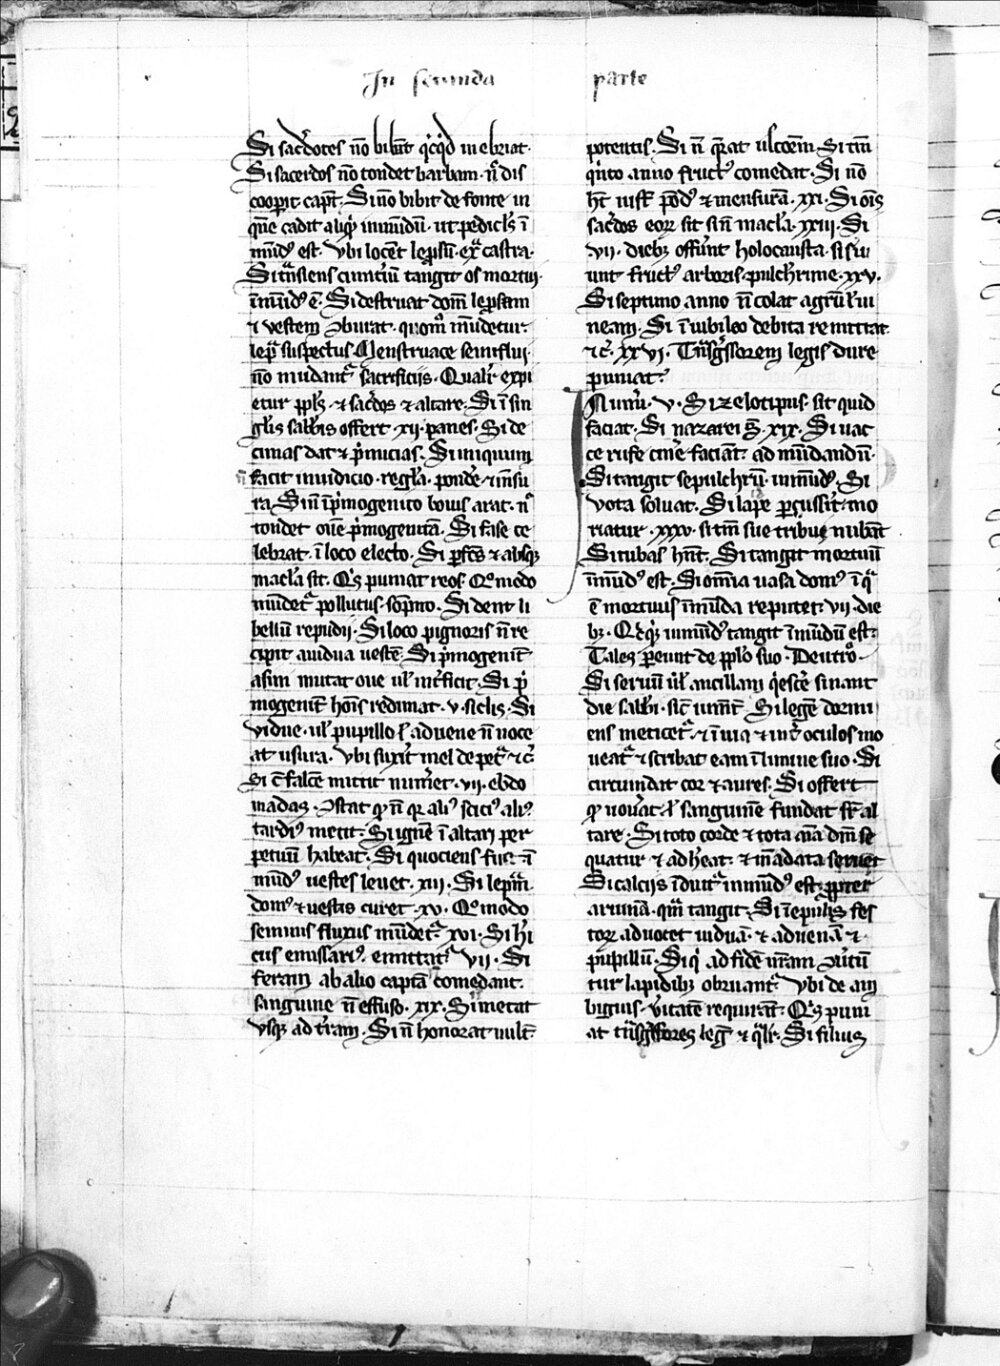 In secunda parte
Si sac̄dotes nō bibūt q̇cq̇d inebriat·
Si sacerdos nō tondet barbam· n̄ dis
cooperit capṫ· Si nō bibit de fonte in
quē cadit aliq̇ inmūdū· ut pedicls̄ ī
mūdꝰ est· Vbi locēt lep̄sū· ex̄ castra·
Si tnsiens cuncū tangit os mortui·
īmūdꝰ ē· Si destruat domū lep̄sam
⁊ vestem ꝯburat· quom̊ mūdetur
lep̄ suspectus Menstruace seminflui·
nō mudant᷑ sacrificijs· Qualit᷑ expi
etur ppls̄· ⁊ sac̄dos ⁊ altare· Si ī sin
gl̄is sabb̄is offert· xij· panes· Si de
cimas dat ⁊ p̄micias· Si iniquum
facit in iudicio· regl̄a· pondē ⁊ mēsu
ra· Si nō ī p̄mogenico bouis arat· n̄
tondet ouē p̄mogenitā· Si fase ce
lebrat· ī loco electo· Si ꝑfc̄s ⁊ absqꝫ
macl̄a sit· Qͥs puniat reos· Qͦmodo
mūdet᷑ pollutus· sōpno· Si dent li
bellū repudij· Si loco pignoris n̄ re
cipit a uidua uestē· Si p̄mogenit̄
asini mutat oue ul᷑ int᷑ficit· Si p̄
mogenit̄ hōis redimat· v· siclis· Si
vidue· ul᷑ pupillo l᷑ aduene n̄ noce
at usura· Vbi suxīt mel de pet᷑ ⁊ c̄
Si ē falcē mittit nūmet· vij· ebdo
madas· ꝯstat qͥ n̄ qͥ aliꝰ sciciꝰ aliꝰ
tardiꝰ metit· Si ignē ī altari per
petuū habeat· Si quociens fuīt ī
mūdꝰ uestes leuet· xiij· Si lep̄m̄·
domꝰ ⁊ uestis curet· xv· Qͦmodo
seminis fluxus mūdet᷑· xvi· Si hi
cus emissariꝰ· emittat᷑ vij· Si
feram ab alio captā comedant·
sanguine n̄ effuso· xix· Si metat
vsqꝫ ad t᷑ram· Si n̄ honorat uult᷑
potentis· Si n̄ q̄rat ulcōem· Si tm̄
qͥnto anno fructꝰ comedat· Si nō
ht̄ iustū pōdꝰ ⁊ mensurā· xxi· Si oīs
sac̄dos eoꝝ sit sin̄ macl̄a· xxiij· Si
·vij· diebꝫ offerūt holocausta· si su
unt fructꝰ arboris· pulchrime· xxv·
Si septimo anno n̄ colat agrū l᷑ ui
neam· Si ī iubileo debita remittat
⁊ c̄· xxvi· Tn̄sḡssorem legis dure
puniat·
Numi̅· v· Si zelotipus· sit quid
faciat· Si nazarei s̄· xix· Si uac
ce rufe cin̄e faciāt· ad mūdandū·
Si tangit sepulchrū· inmūdꝰ· Si
vota soluat· Si lape p̄cussīt· mo
riatur· xxxv· si tm̄ sue tribus nubāt
Si tubas hn̄t· Si tangit mortuū
īmūdꝰ est· Si omīa uasa domꝰ ī q̄
ē mortuus īmūda reputet· vij· die
bꝫ· Qd̄cqͥ inmūdꝰ tangit īmūdū est·
Tales pereunt de pplo suo· Deutro·
Si seruū ul᷑ ancillam qͥescē sinant
die sabb̄i· sic̄ iniūt· Si legē dormi
ens metitet᷑· ⁊ ī uia ⁊ int᷑ oculos mo
ueat᷑ ⁊ scribat eam ī limine suo· Si
circumdat cor ⁊ aures· Si offert
qͥ uouat· l᷑ sanguinē fundat sr̄ al
tare· Si toto corde ⁊ tota aīa dm̄ se
quatur ⁊ adheat· ⁊ mādata seruet
Si calciis īduit᷑ inmūdꝰ est· propter
aruinā· quā tangit· Si ī epulis fes
toꝝ aduocet uiduā· ⁊ aduenā ⁊
pupillū· Si qͥ ad fidē nr̄am ꝯūtū
tur lapidibꝫ obruant᷑ Vbi de am
biguis· v̄itatē requirāt· Qͥs puni
at tn̄sḡssores leḡ ⁊ qͥl᷑r· Si filius